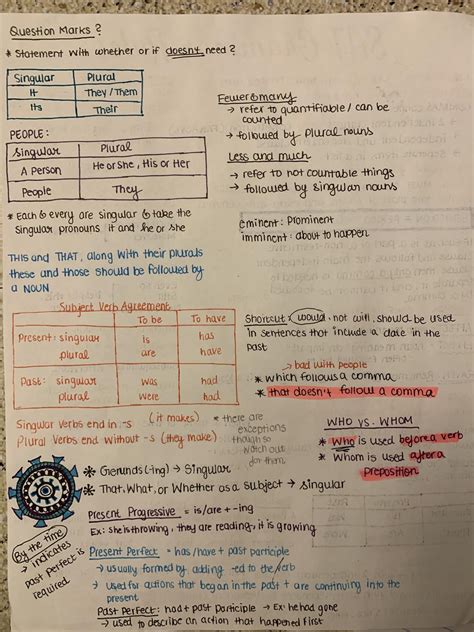 Question Marks ?
* Statement with whether or if doesn't need ?
Singular Plural
It They / Them
Its Their
PEOPLE:
Singular Plural
A Person He or She, His or Her
People They
* Each & every are singular & take the
singular pronouns it and she or she
THIS and THAT, along with their plurals
these and those should be followed by
a NOUN
Fewer & many
→ refer to quantifiable / can be
counted
→ followed by plural nouns
Less and much
→ refer to not countable things
→ followed by singular nouns
eminent: Prominent
imminent: about to happen
Subject Verb Agreement
To be To have
Present: singular is has
plural are have
Past: singular was had
plural were had
Singular Verbs end in -s (it makes)
Plural Verbs end without -s (they make)
* there are
exceptions
though so
watch out
for them
Shortcut: would, not will, should be used
in sentences that include a date in the
past
→ bad with people
* which follows a comma
* that doesn't follow a comma
WHO VS. WHOM
* Who is used before a verb
* Whom is used after a
preposition
* Gerunds (-ing) → Singular
* That, What, or Whether as a subject → singular
Present Progressive = is/are + -ing
Ex: She is throwing, they are reading, it is growing
By the time
→ indicates
past perfect is
required
Present Perfect = has/have + past participle
→ usually formed by adding -ed to the verb
→ used for actions that began in the past + are continuing into the
present
Past Perfect: had + past participle → Ex: he had gone
→ used to describe an action that happened first